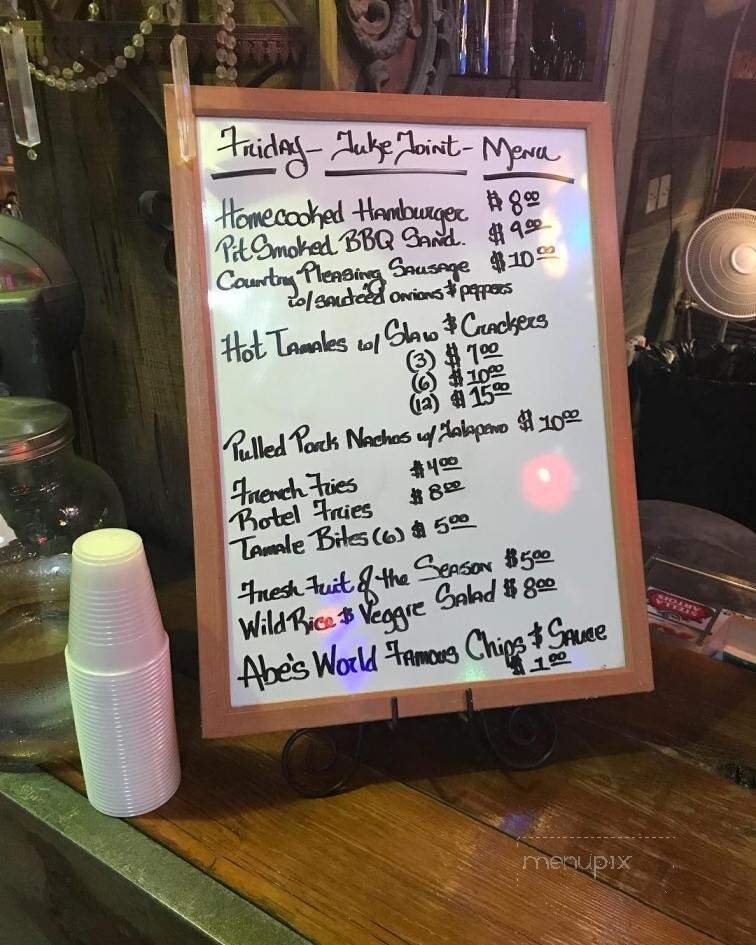 Friday - Juke Joint - Menu
Homecooked Hamburger $ 8.00
Pit Smoked BBQ Sand. $ 9.00
Country Pleasing Sausage $ 10.00
w/ sauteed onions & peppers
Hot Tamales w/ Slaw & Crackers
(3) $ 7.00
(6) $ 10.00
(12) $ 15.00
Pulled Pork Nachos w/ Jalapeno $ 10.00
French Fries $4.00
Rotel Fries $ 8.00
Tamale Bites (6) $ 5.00
Fresh Fuit of the Season $5.00
Wild Rice & Veggie Salad $ 8.00
Abe's World Famous Chips & Sauce
$ 1.00
STELLA
ARTOIS
menupix